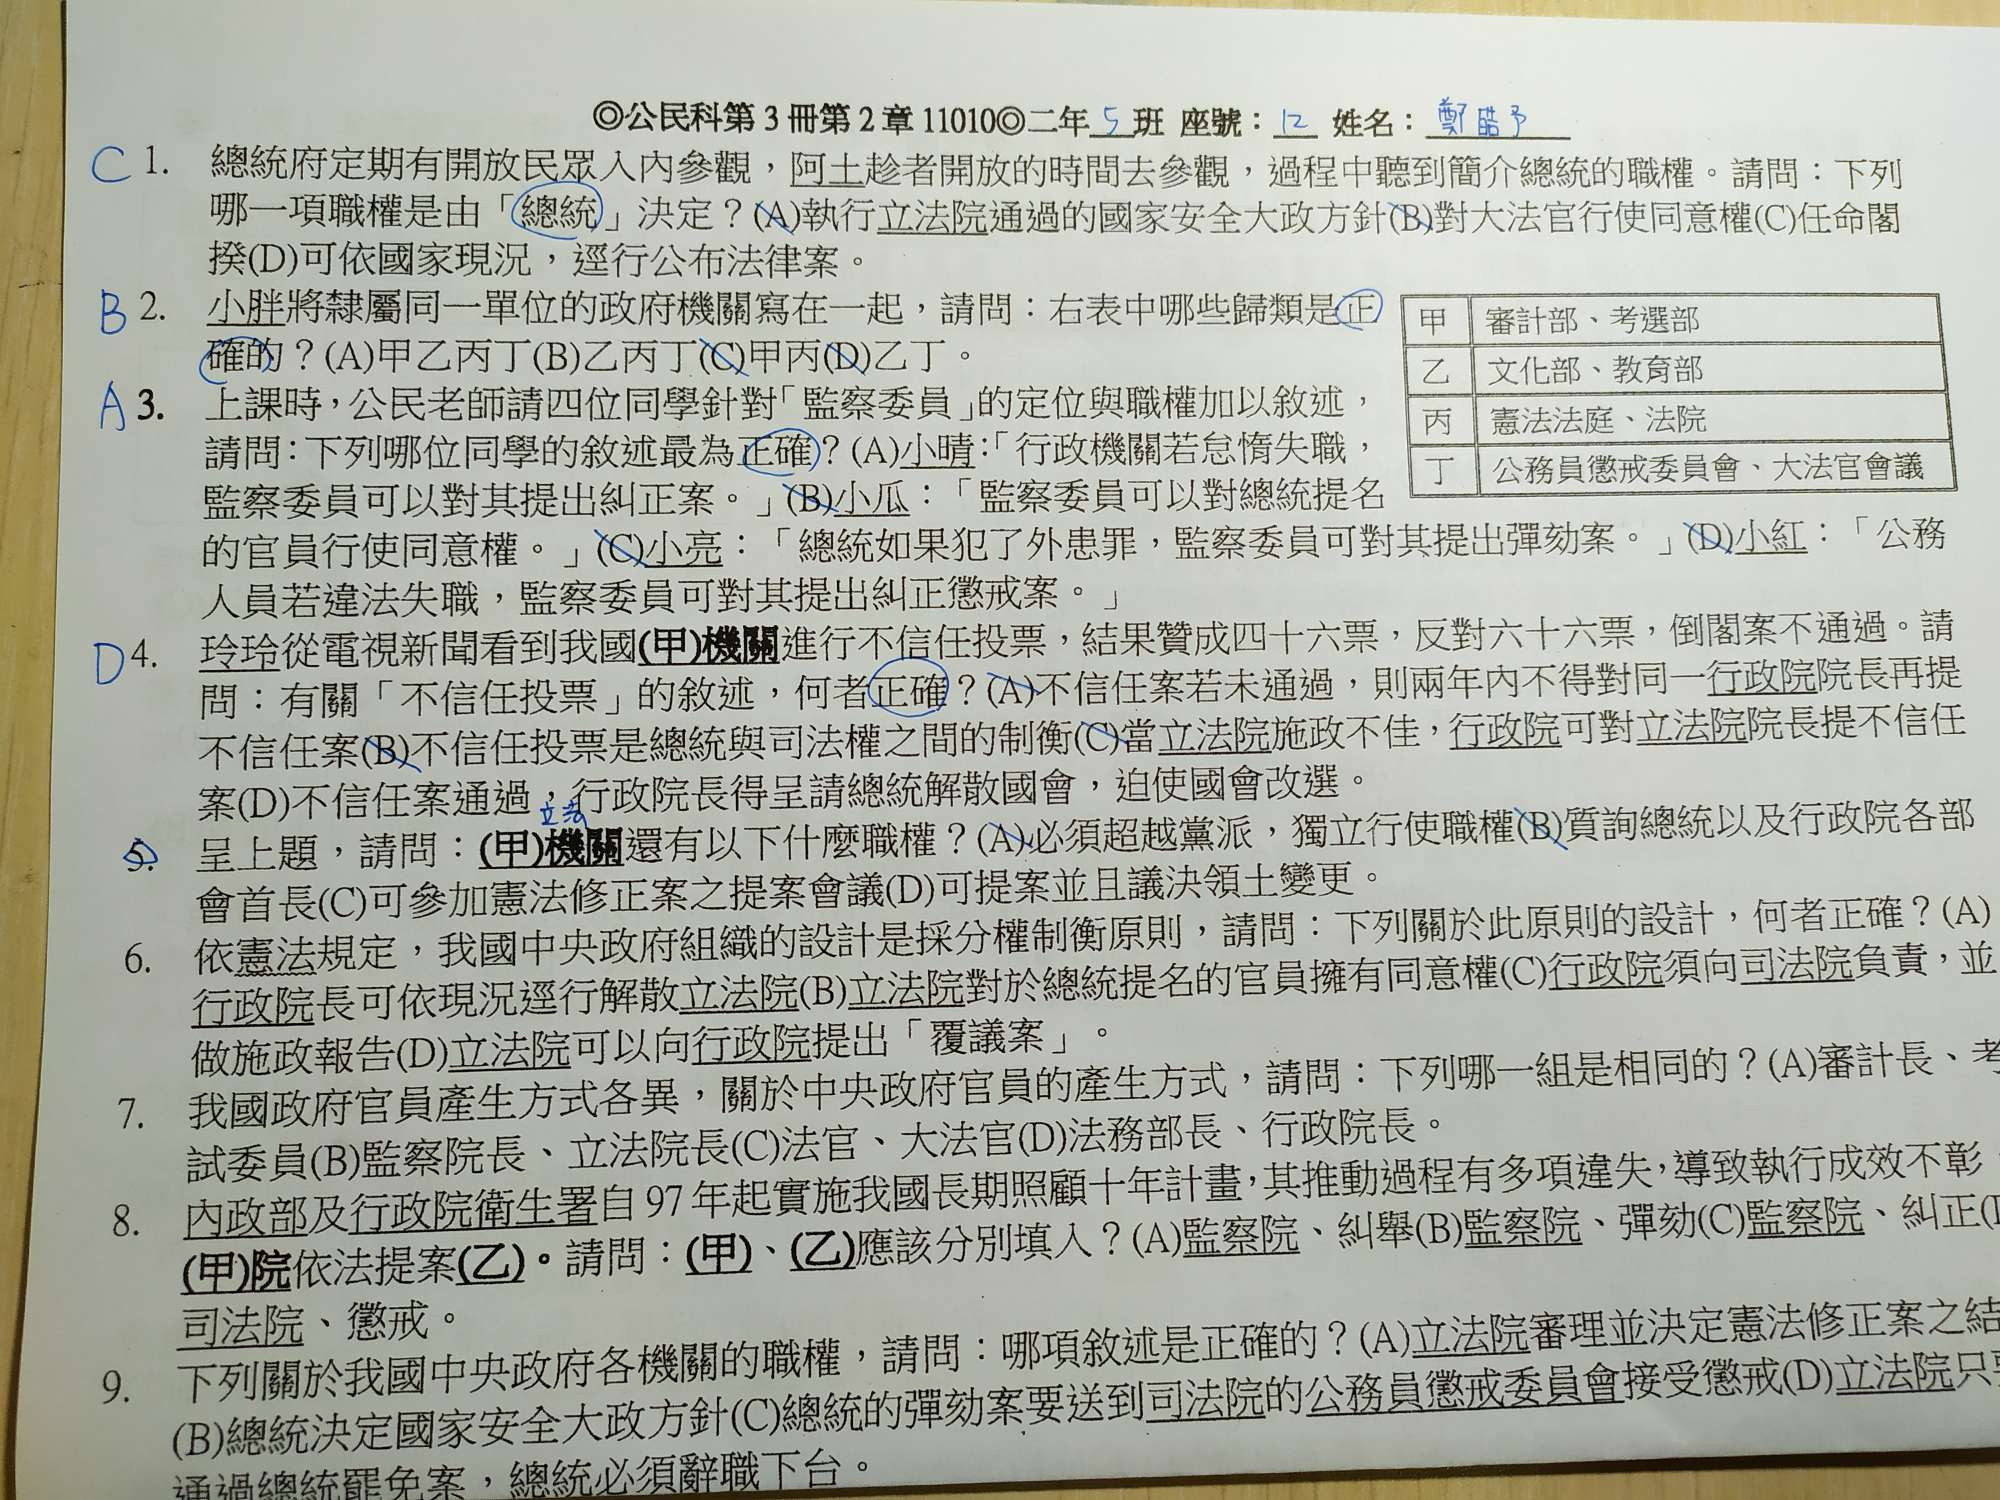 ◎公民科第3冊第2章11010◎二年5班 座號：12 姓名：鄭皓予
C 1. 總統府定期有開放民眾入內參觀，阿土趁者開放的時間去參觀，過程中聽到簡介總統的職權。請問：下列
哪一項職權是由「總統」決定？(A)執行立法院通過的國家安全大政方針(B)對大法官行使同意權(C)任命閣
揆(D)可依國家現況，逕行公布法律案。
B 2. 小胖將隸屬同一單位的政府機關寫在一起，請問：右表中哪些歸類是正
確的？(A)甲乙丙丁(B)乙丙丁(C)甲丙(D)乙丁。
甲 審計部、考選部
乙 文化部、教育部
丙 憲法法庭、法院
丁 公務員懲戒委員會、大法官會議
A 3. 上課時，公民老師請四位同學針對「監察委員」的定位與職權加以敘述，
請問：下列哪位同學的敘述最為正確？(A)小晴：「行政機關若怠惰失職，
監察委員可以對其提出糾正案。」(B)小瓜：「監察委員可以對總統提名
的官員行使同意權。」(C)小亮：「總統如果犯了外患罪，監察委員可對其提出彈劾案。」(D)小紅：「公務
人員若違法失職，監察委員可對其提出糾正懲戒案。」
D 4. 玲玲從電視新聞看到我國(甲)機關進行不信任投票，結果贊成四十六票，反對六十六票，倒閣案不通過。請
問：有關「不信任投票」的敘述，何者正確？(A)不信任案若未通過，則兩年內不得對同一行政院院長再提
不信任案(B)不信任投票是總統與司法權之間的制衡(C)當立法院施政不佳，行政院可對立法院院長提不信任
案(D)不信任案通過，行政院長得呈請總統解散國會，迫使國會改選。
立法
5. 呈上題，請問：(甲)機關還有以下什麼職權？(A)必須超越黨派，獨立行使職權(B)質詢總統以及行政院各部
會首長(C)可參加憲法修正案之提案會議(D)可提案並且議決領土變更。
6. 依憲法規定，我國中央政府組織的設計是採分權制衡原則，請問：下列關於此原則的設計，何者正確？(A)
行政院長可依現況逕行解散立法院(B)立法院對於總統提名的官員擁有同意權(C)行政院須向司法院負責，並
做施政報告(D)立法院可以向行政院提出「覆議案」。
7. 我國政府官員產生方式各異，關於中央政府官員的產生方式，請問：下列哪一組是相同的？(A)審計長、考
試委員(B)監察院長、立法院長(C)法官、大法官(D)法務部長、行政院長。
8. 內政部及行政院衛生署自97年起實施我國長期照顧十年計畫，其推動過程有多項違失，導致執行成效不彰，
(甲)院依法提案(乙)。請問：(甲)、(乙)應該分別填入？(A)監察院、糾舉(B)監察院、彈劾(C)監察院、糾正(D
司法院、懲戒。
9. 下列關於我國中央政府各機關的職權，請問：哪項敘述是正確的？(A)立法院審理並決定憲法修正案之結
(B)總統決定國家安全大政方針(C)總統的彈劾案要送到司法院的公務員懲戒委員會接受懲戒(D)立法院只要
通過總統罷免案，總統必須辭職下台。